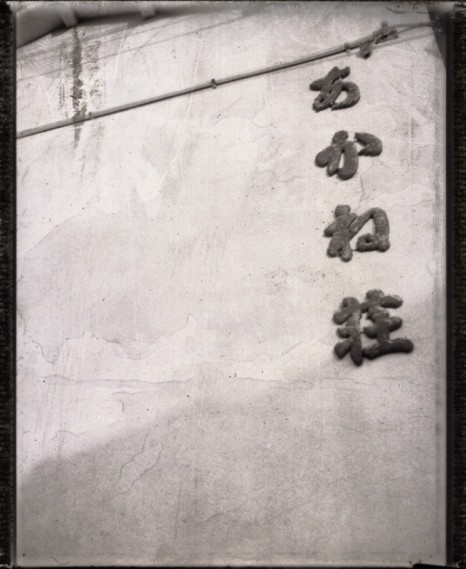 あかね荘